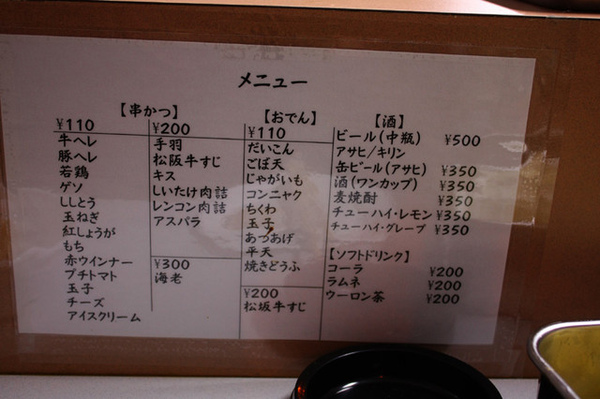 メニュー
【串かつ】
¥110
牛ヘレ
豚ヘレ
若鶏
ゲソ
ししとう
玉ねぎ
紅しょうが
もち
赤ウインナー
プチトマト
玉子
チーズ
アイスクリーム
¥200
手羽
松阪牛すじ
キス
しいたけ肉詰
レンコン肉詰
アスパラ
¥300
海老
【おでん】
¥110
だいこん
ごぼ天
じゃがいも
コンニャク
ちくわ
玉子
あつあげ
平天
焼きどうふ
¥200
松坂牛すじ
【酒】
ビール(中瓶) ¥500
アサヒ/キリン
缶ビール(アサヒ) ¥350
酒(ワンカップ) ¥350
麦焼酎 ¥350
チューハイ・レモン ¥350
チューハイ・グレープ ¥350
【ソフトドリンク】
コーラ ¥200
ラムネ ¥200
ウーロン茶 ¥200